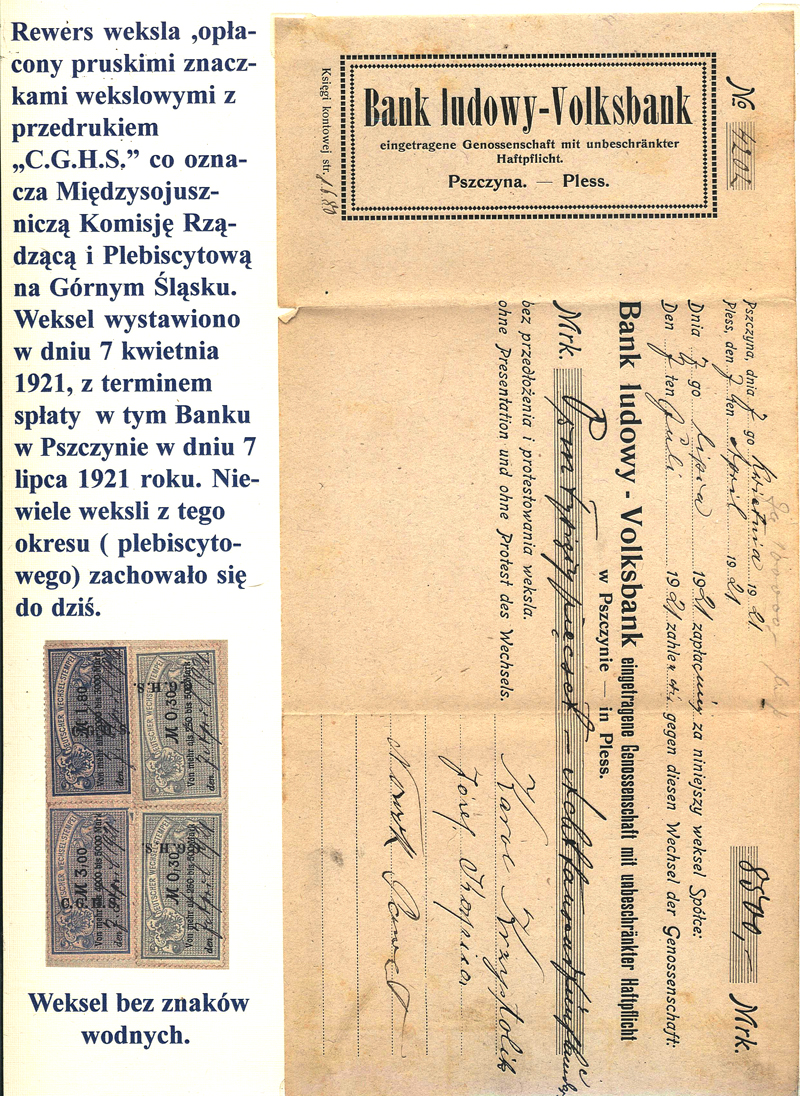 Rewers weksla ,opła-
cony pruskimi znacz-
kami wekslowymi z
przedrukiem
„C.G.H.S.” co ozna-
cza Międzysojusz-
niczą Komisję Rzą-
dzącą i Plebiscytową
na Górnym Śląsku.
Weksel wystawiono
w dniu 7 kwietnia
1921, z terminem
spłaty w tym Banku
w Pszczynie w dniu 7
lipca 1921 roku. Nie-
wiele weksli z tego
okresu ( plebiscyto-
wego) zachowało się
do dziś.
DEUTSCHER WECHSEL-STEMPEL
M 0,80
C.G.H.S.
den
DEUTSCHER WECHSEL-STEMPEL
M 0,30
C.G.H.S.
den
DEUTSCHER WECHSEL-STEMPEL
M 3,00
C.G.H.S.
den
DEUTSCHER WECHSEL-STEMPEL
M 0,30
C.G.H.S.
den
Weksel bez znaków
wodnych.
Księgi kontowej str.
Bank ludowy-Volksbank
eingetragene Genossenschaft mit unbeschränkter
Haftpflicht.
Pszczyna. — Pless.
№ 4204
Pszczyna, dnia 7 go kwietnia 1921.
Pless, den 7 ten April 1921
8500,- Mrk.
Dnia 7 go lipca 1921 zapłacimy za niniejszy weksel Spółce:
Den 7 ten Juli 1921 zahlen wir gegen diesen Wechsel der Genossenschaft:
Bank ludowy - Volksbank eingetragene Genossenschaft mit unbeschränkter Haftpflicht
w Pszczynie — in Pless.
Mrk. Osm tysięcy pięćset - Achttausendfünfhundert
bez przedłożenia i protestowania weksla.
ohne Presentation und ohne Protest des Wechsels.
Karol Krzystolik
Józef
Nowak Paweł